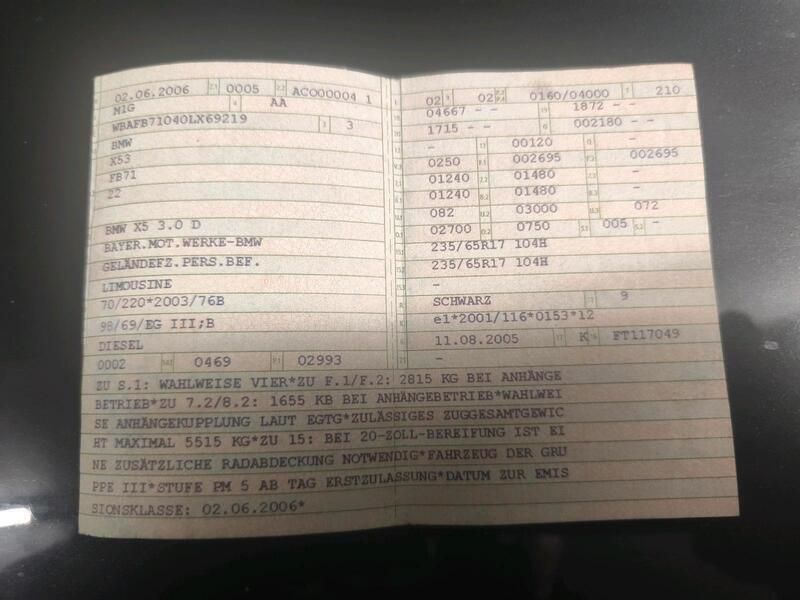 02.06.2006 2.1 0005 2.2 AC000004 1
M1G 4 AA
WBAFB71040LX69219 3 3
BMW
X53
FB71
22
BMW X5 3.0 D
BAYER.MOT.WERKE-BMW
GELÄNDEFZ.PERS.BEF.
LIMOUSINE
70/220*2003/76B
98/69/EG III;B
DIESEL
0002 0469 P.1 02993
02 02 0160/04000 210
04667 - - 1872 - -
1715 - - G 002180 - -
- 00120 -
0250 F.1 002695 F.2 002695
01240 01480 -
01240 01480 -
082 U.2 03000 U.3 072
02700 O.2 0750 S.1 005 S.2 -
235/65R17 104H
235/65R17 104H
-
SCHWARZ 9
e1*2001/116*0153*12
11.08.2005 17 K FT117049
-
ZU S.1: WAHLWEISE VIER*ZU F.1/F.2: 2815 KG BEI ANHÄNGE
BETRIEB*ZU 7.2/8.2: 1655 KB BEI ANHÄNGEBETRIEB*WAHLWEI
SE ANHÄNGEKUPPLUNG LAUT EGTG*ZULÄSSIGES ZUGGESAMTGEWIC
HT MAXIMAL 5515 KG*ZU 15: BEI 20-ZOLL-BEREIFUNG IST EI
NE ZUSÄTZLICHE RADABDECKUNG NOTWENDIG*FAHRZEUG DER GRU
PPE III*STUFE PM 5 AB TAG ERSTZULASSUNG*DATUM ZUR EMIS
SIONSKLASSE: 02.06.2006*